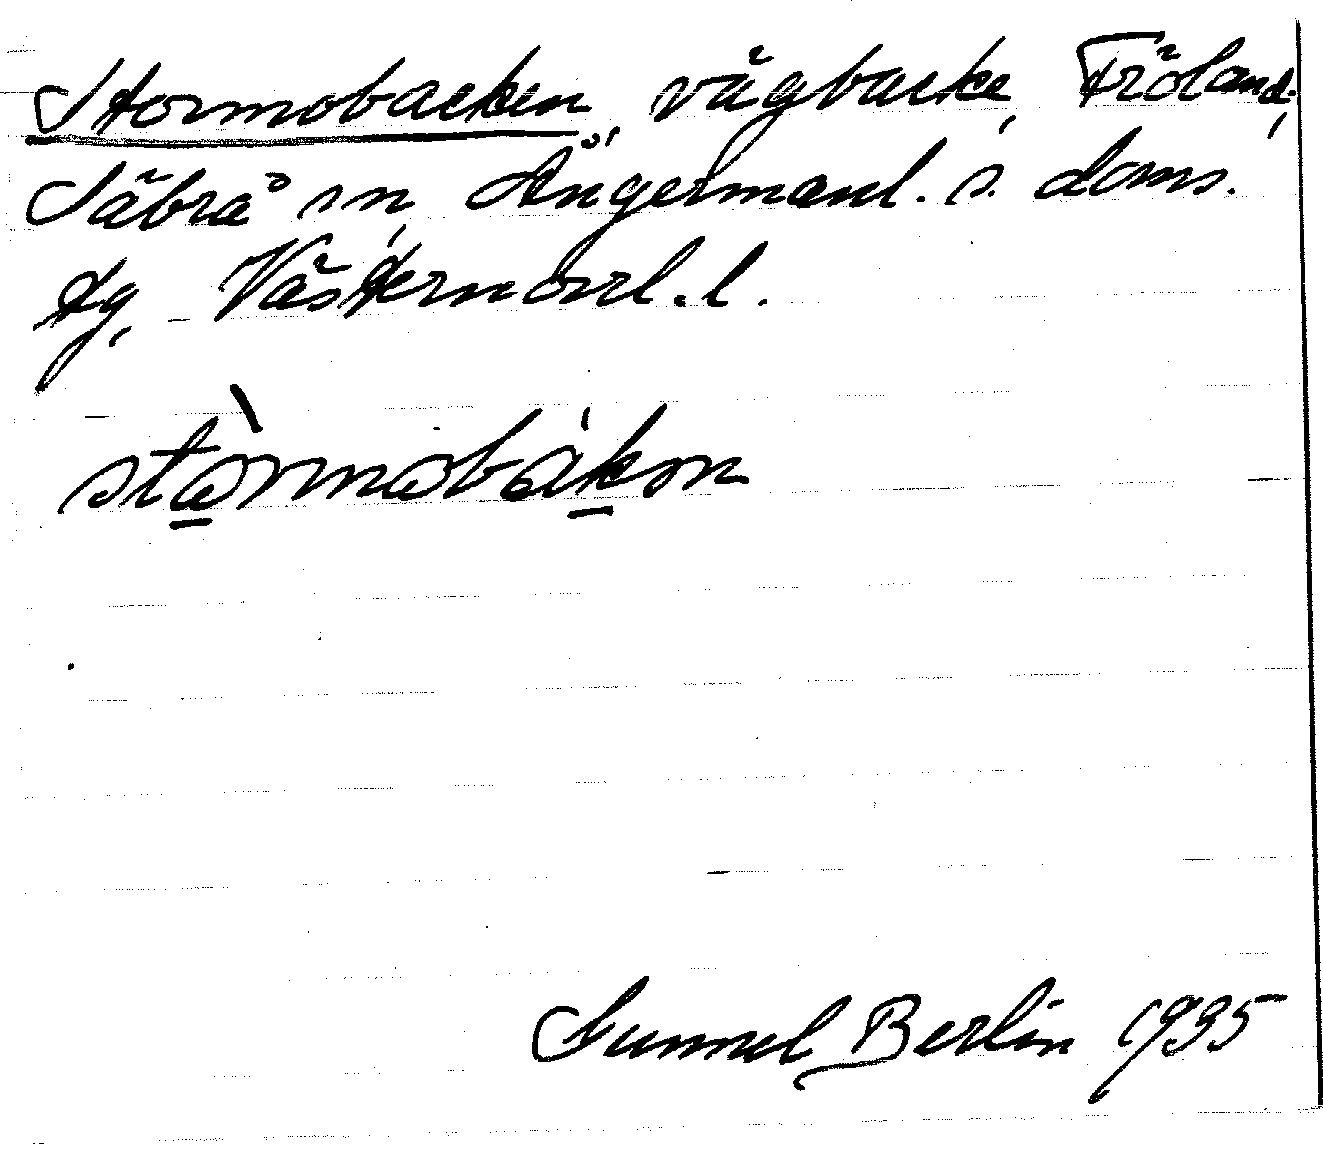 Stormobacken, vägbacke, Fröland,
Säbrå sn, Ångermanl. s. doms.
tg, Västernorrl. l.
stòrmobákən
Gunnel Berlin 1935